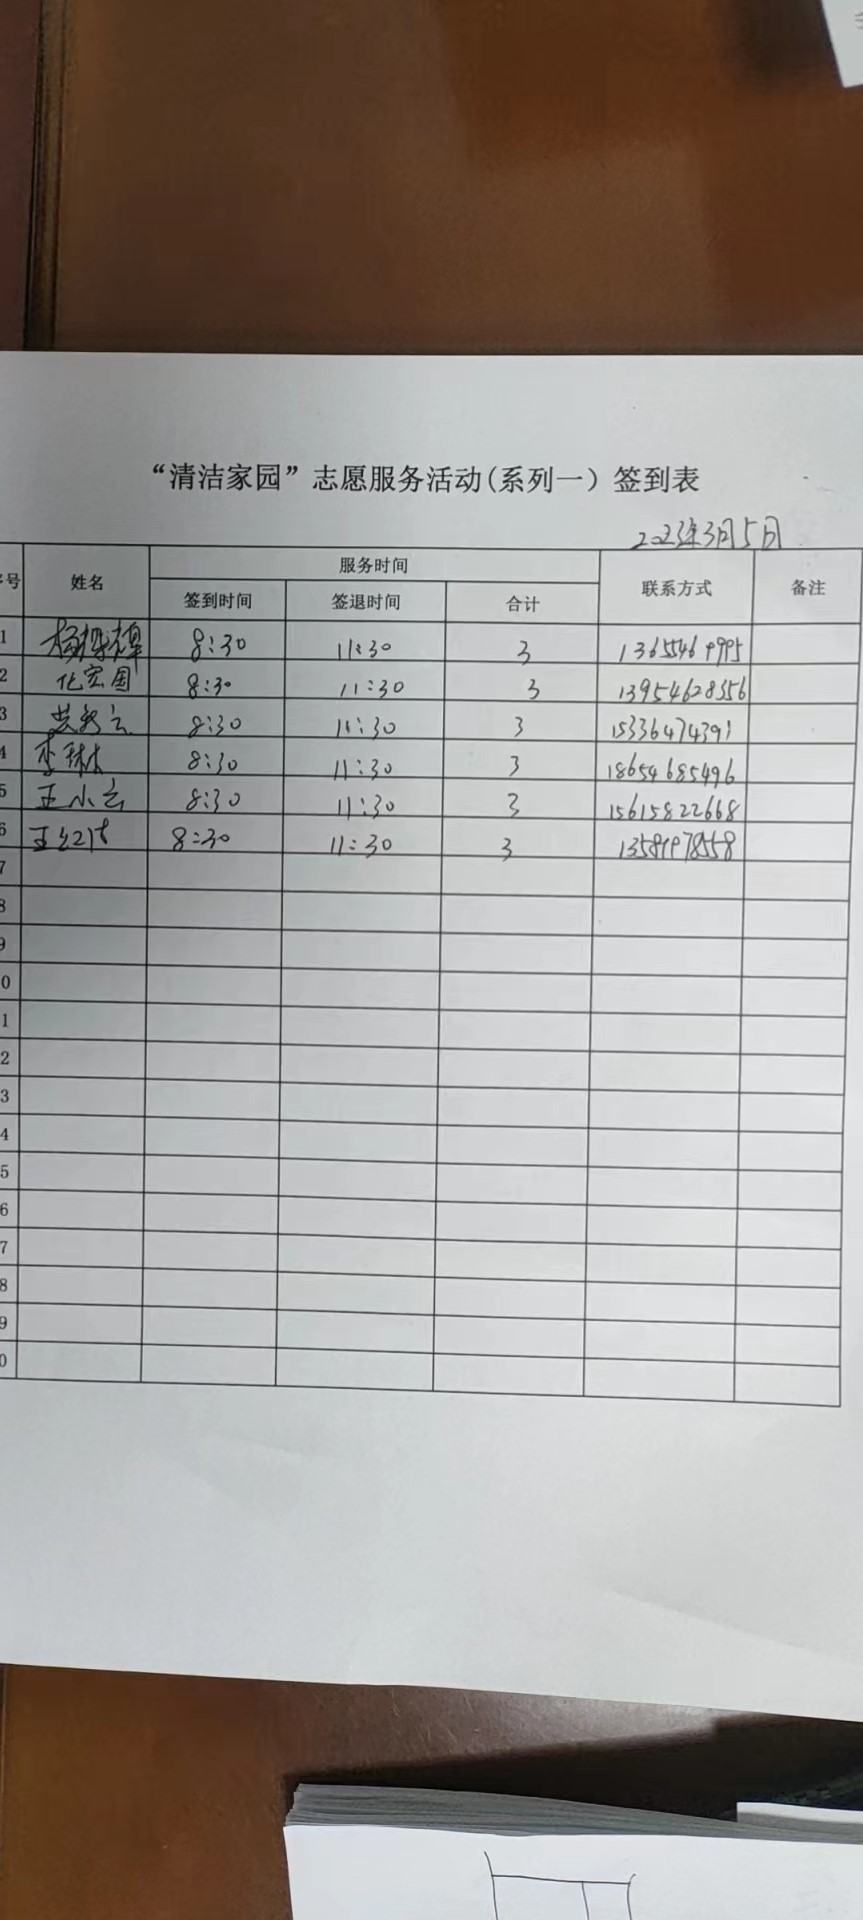 “清洁家园”志愿服务活动(系列一）签到表
2023年3月5日
序号 姓名 服务时间 联系方式 备注
签到时间 签退时间 合计
1 8:30 11:30 3
2 化宏国 8:30 11:30 3 13954628556
3 8:30 11:30 3 15336474391
4 李琳 8:30 11:30 3 18654685496
5 王小云 8:30 11:30 3 15615822668
6 8:30 11:30 3
7
8
9
0
1
2
3
4
5
6
7
8
9
0